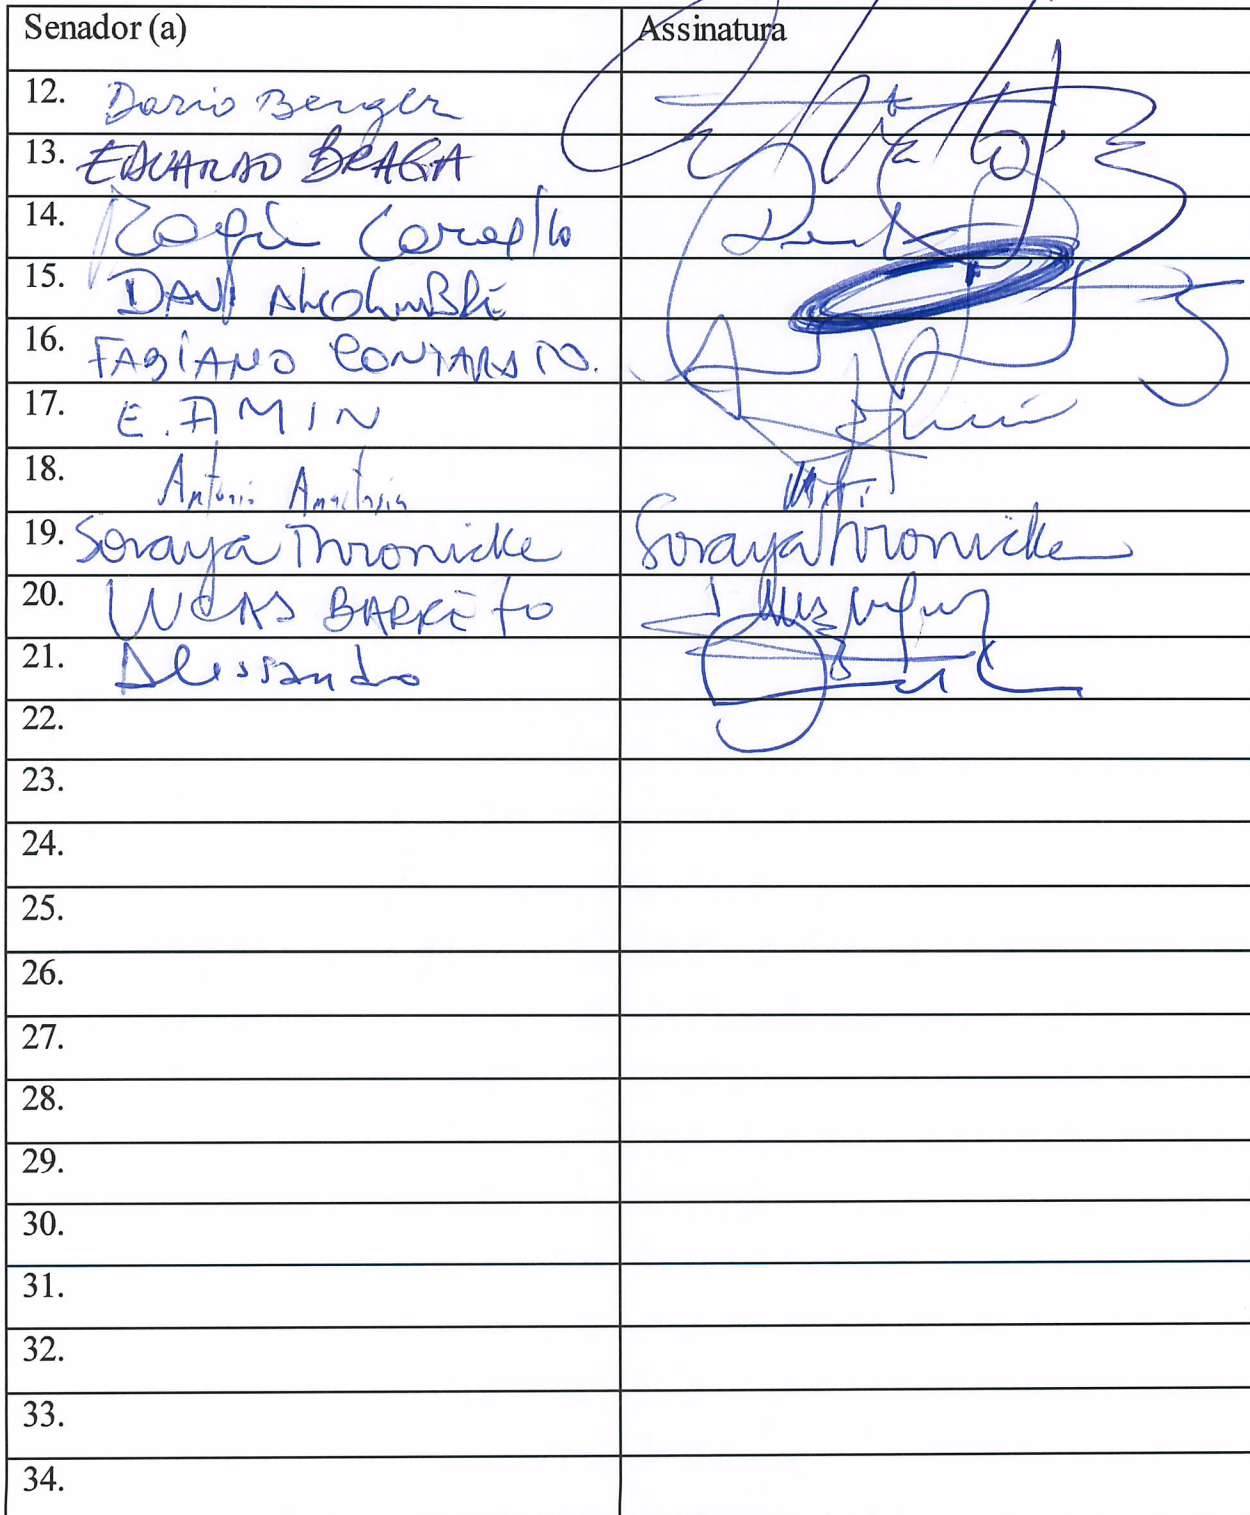 Senador (a) Assinatura
12. Dario Berger
13. EDUARDO BRAGA
14. Rogério Carvalho
15. DAVI ALCOLUMBRE
16. FABIANO CONTARATO.
17. E. AMIN
18. Antonio Anastasia
19. Soraya Thronicke Soraya Thronicke
20. LUCAS BARRETO
21. Alessandro
22.
23.
24.
25.
26.
27.
28.
29.
30.
31.
32.
33.
34.